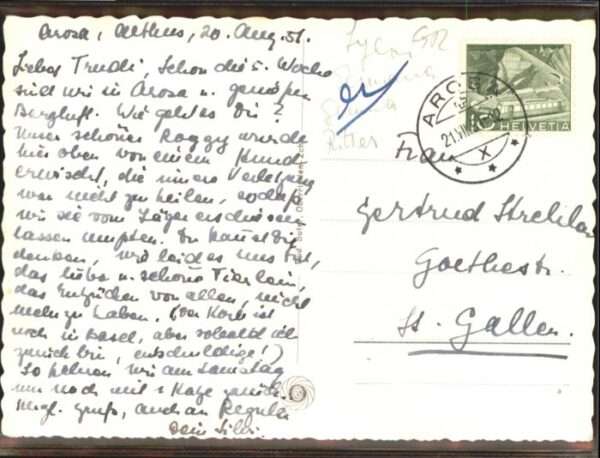 Arosa, 20. Aug. 51.
Liebes Trudi, Schon die 5. Woche
sind wir in Arosa u. geniessen
Bergluft. Wie geht es Dir?
Unser schönes Roggy wurde
hier oben von einem Hund
erwischt, die innere Verletzung
war nicht zu heilen, sodass
wir sie vom Jäger erschiessen
lassen mussten. Du kannst Dir
denken, wie leid es uns tut,
das liebe u. schöne Tierlein,
das Entzücken von allen, nicht
mehr zu haben. (Der Korb ist
noch in Basel, aber sobald ich
zurück bin, entschuldige!)
So kehren wir am Samstag
nur noch mit 1 Katze zurück.
Herzl. Gruss, auch an
Dein
Ritter
AROSA
21.VIII.51
X
HELVETIA
Frau
Gertrud
Goethestr.
St. Gallen.